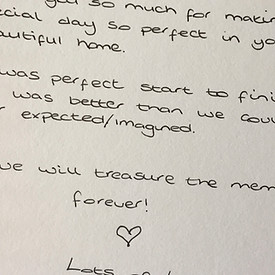 you so much for making
special day so perfect in you
beautiful home.
was perfect start to fini
was better than we cou
expected/imagined.
we will treasure the mem
forever!
Lots of